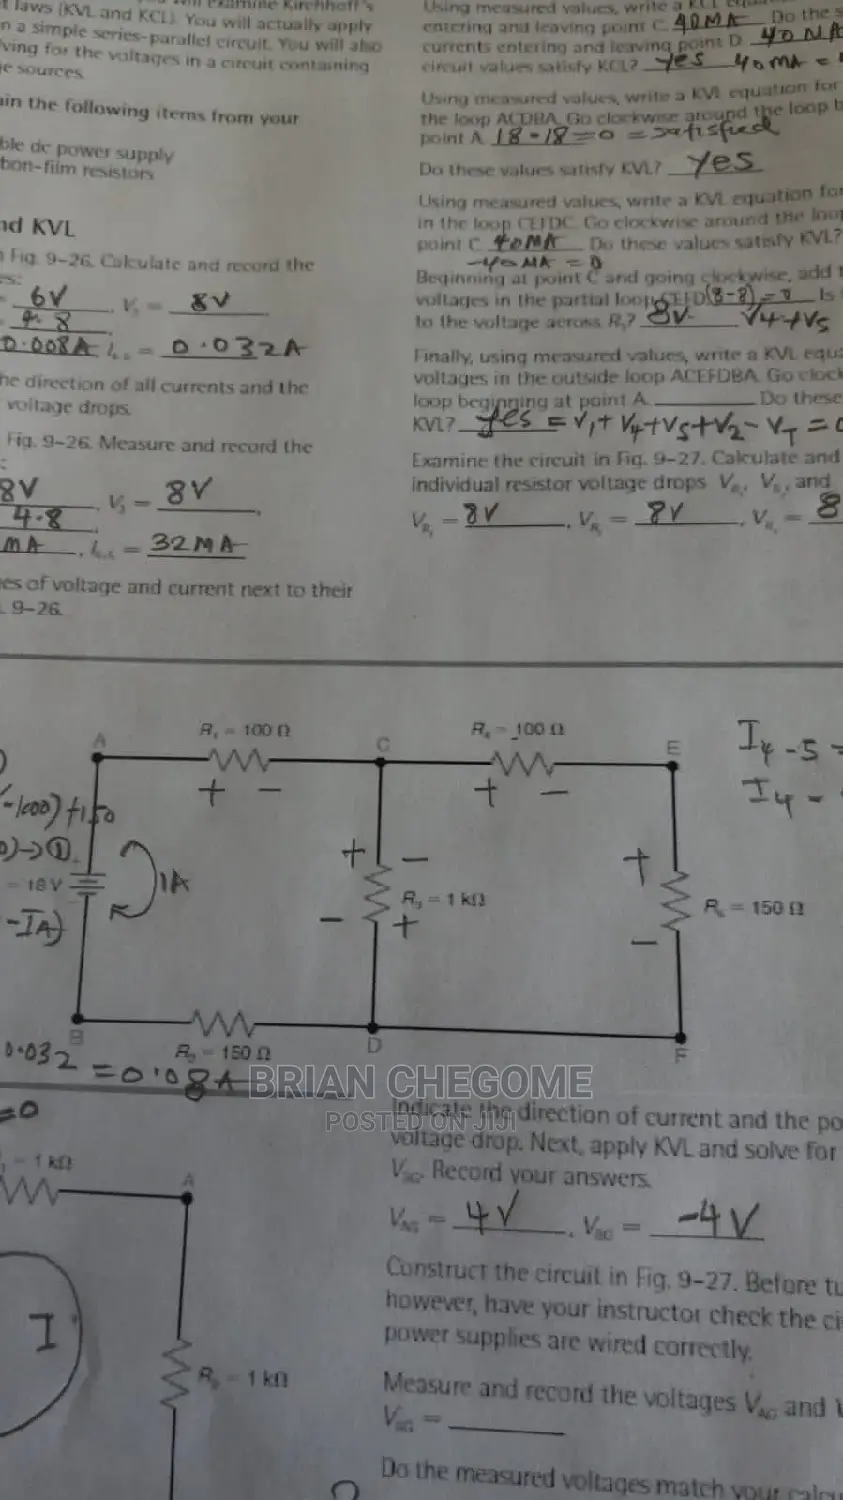 t laws (KVL and KCL). You will actually apply
n a simple series-parallel circuit. You will also
lving for the voltages in a circuit containing
ge sources.
ain the following items from your
ble dc power supply
bon-film resistors
nd KVL
Fig. 9–26. Calculate and record the
es:
6V V3 = 8V
4.8
0.008A I4-5 = 0.032A
he direction of all currents and the
voltage drops.
Fig. 9–26. Measure and record the
:
8V V3 = 8V
4.8
MA I4-5 = 32MA
es of voltage and current next to their
. 9–26.
Using measured values, write a KCL
entering and leaving point C. 40MA Do the s
currents entering and leaving point D.
circuit values satisfy KCL? yes 40MA =
Using measured values, write a KVL equation for
the loop ACDBA. Go clockwise around the loop b
point A. 18-18=0 = satisfied
Do these values satisfy KVL? Yes
Using measured values, write a KVL equation for
in the loop CEFDC. Go clockwise around the loop
point C. 40MA Do these values satisfy KVL?
-40MA = 0
Beginning at point C and going clockwise, add t
voltages in the partial loop CEFD (8-8)=0 Is
to the voltage across R3? 8V V4+V5
Finally, using measured values, write a KVL equa
voltages in the outside loop ACEFDBA. Go clock
loop beginning at point A. Do these
KVL? yes = V1+V4+V5+V2-VT=0
Examine the circuit in Fig. 9–27. Calculate and
individual resistor voltage drops and
= 8V = 8V = 8
R1 = 100 Ω
R4 = 100 Ω
A C E
I4-5 =
I4 -
+ - + -
-1000)+150
)→①
= 18V
1A
-IA)
+ - +
R3 = 1 kΩ
= 150 Ω
- + -
B D F
R2 = 150 Ω
0.032 = 0.08A
BRIAN CHEGOME
POSTED ON JIJI
=0
= 1 kΩ
A
I
= 1 kΩ
Indicate the direction of current and the po
voltage drop. Next, apply KVL and solve for
VBG. Record your answers.
VAG = 4V, VBG = -4V
Construct the circuit in Fig. 9–27. Before tu
however, have your instructor check the ci
power supplies are wired correctly.
Measure and record the voltages VAG and V
VBG =
Do the measured voltages match your calcu